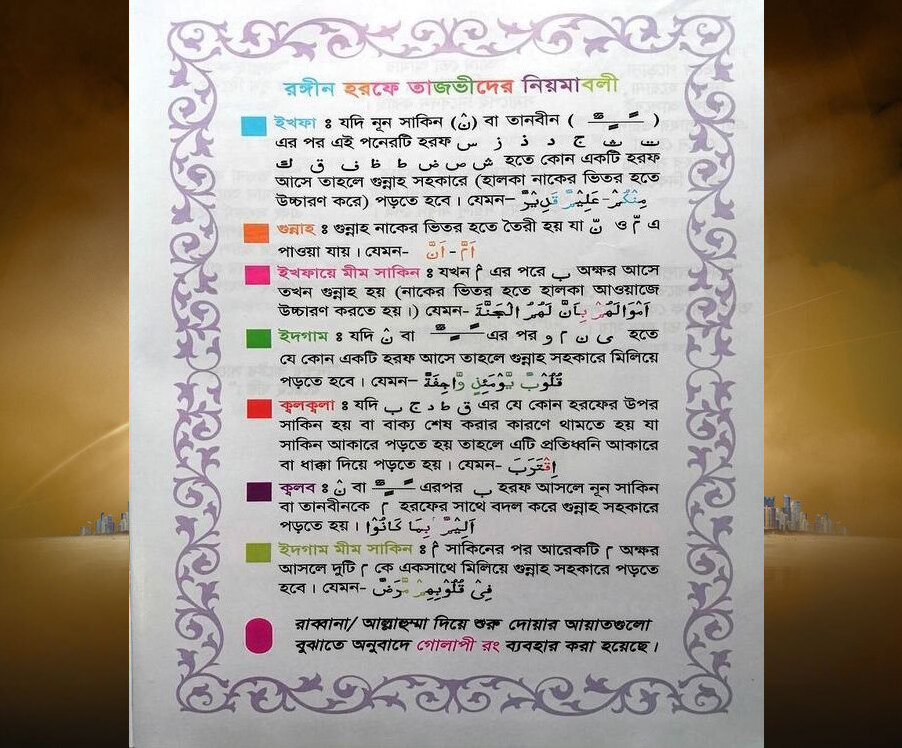 রঙ্গীন হরফে তাজভীদের নিয়মাবলী
ইখফা ঃ যদি নূন সাকিন (نْ) বা তানবীন ( ـًـٍـٌ )
এর পর এই পনেরটি হরফ ت ث ج د ذ ز س
ش ص ض ط ظ ف ق ك হতে কোন একটি হরফ
আসে তাহলে গুন্নাহ সহকারে (হালকা নাকের ভিতর হতে
উচ্চারণ করে) পড়তে হবে। যেমন– مِنْكُمْ-عَلِيْمٌ قَدِيْرٌ
গুন্নাহ ঃ গুন্নাহ নাকের ভিতর হতে তৈরী হয় যা نّ ও مّ এ
পাওয়া যায়। যেমন- اَمَّ - اَنَّ
ইখফায়ে মীম সাকিন ঃ যখন مْ এর পরে ب অক্ষর আসে
তখন গুন্নাহ হয় (নাকের ভিতর হতে হালকা আওয়াজে
উচ্চারণ করতে হয়।) যেমন- اَمْوَالَهُمْ بِاَنَّ لَهُمُ الْجَنَّةَ
ইদগাম ঃ যদি نْ বা ـًـٍـٌ এর পর ى ن م و হতে
যে কোন একটি হরফ আসে তাহলে গুন্নাহ সহকারে মিলিয়ে
পড়তে হবে। যেমন– قُلُوْبٌ يَّوْمَئِذٍ وَّاجِفَةٌ
ক্বলক্বলা ঃ যদি ق ط د ج ب এর যে কোন হরফের উপর
সাকিন হয় বা বাক্য শেষ করার কারণে থামতে হয় যা
সাকিন আকারে পড়তে হয় তাহলে এটি প্রতিধ্বনি আকারে
বা ধাক্কা দিয়ে পড়তে হয়। যেমন- اِقْتَرَبَ
ক্বলব ঃ نْ বা ـًـٍـٌ এরপর ب হরফ আসলে নূন সাকিন
বা তানবীনকে م হরফের সাথে বদল করে গুন্নাহ সহকারে
পড়তে হয়। اَلِيْمٌ بِمَا كَانُوْا
ইদগাম মীম সাকিন ঃ مْ সাকিনের পর আরেকটি م অক্ষর
আসলে দুটি م কে একসাথে মিলিয়ে গুন্নাহ সহকারে পড়তে
হবে। যেমন- فِىْ قُلُوْبِهِمْ مَّرَضٌ
রাব্বানা/ আল্লাহুম্মা দিয়ে শুরু দোয়ার আয়াতগুলো
বুঝাতে অনুবাদে গোলাপী রং ব্যবহার করা হয়েছে।